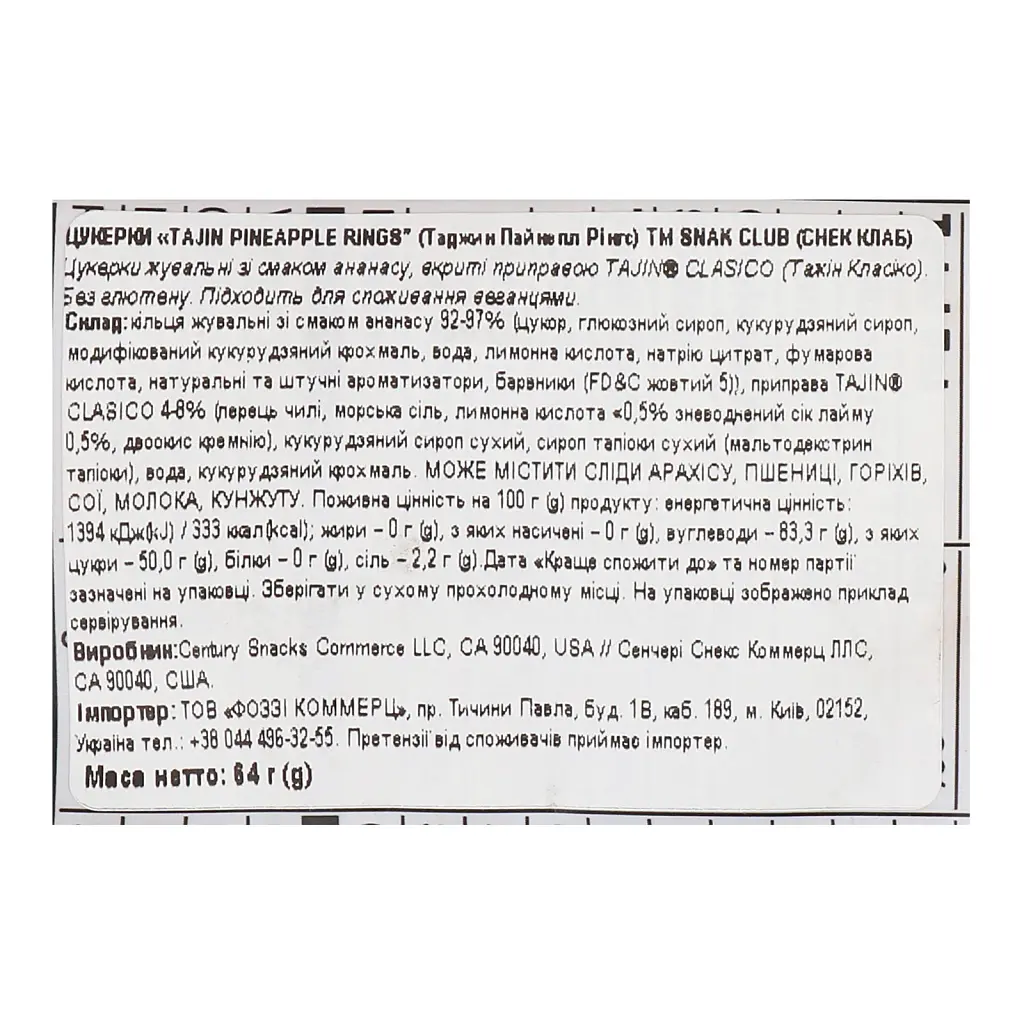 ЦУКЕРКИ «TAJIN PINEAPPLE RINGS” (Таджин Пайнепл Рінгс) ТМ SNAK CLUB (СНЕК КЛАБ)
Цукерки жувальні зі смаком ананасу, вкриті приправою TAJIN® CLASICO (Тахін Класіко).
Без глютену. Підходить для споживання веганцями.
Склад: кільця жувальні зі смаком ананасу 92-97% (цукор, глюкозний сироп, кукурудзяний сироп,
модифікований кукурудзяний крохмаль, вода, лимонна кислота, натрію цитрат, фумарова
кислота, натуральні та штучні ароматизатори, барвники (FD&C жовтий 5)), приправа TAJIN®
CLASICO 4-8% (перець чилі, морська сіль, лимонна кислота «0,5% зневоднений сік лайму
0,5%, двоокис кремнію), кукурудзяний сироп сухий, сироп тапіоки сухий (мальтодекстрин
тапіоки), вода, кукурудзяний крохмаль. МОЖЕ МІСТИТИ СЛІДИ АРАХІСУ, ПШЕНИЦІ, ГОРІХІВ,
СОЇ, МОЛОКА, КУНЖУТУ. Поживна цінність на 100 г (g) продукту: енергетична цінність:
1394 кДж(kJ) / 333 ккал(kcal); жири – 0 г (g), з яких насичені – 0 г (g), вуглеводи – 83,3 г (g), з яких
цукри – 50,0 г (g), білки – 0 г (g), сіль – 2,2 г (g).Дата «Краще спожити до» та номер партії
зазначені на упаковці. Зберігати у сухому прохолодному місці. На упаковці зображено приклад
сервірування.
Виробник:Century Snacks Commerce LLC, CA 90040, USA // Сенчері Снекс Коммерц ЛЛС,
CA 90040, США.
Імпортер: ТОВ «ФОЗЗІ КОММЕРЦ», пр. Тичини Павла, буд. 1В, каб. 189, м. Київ, 02152,
Україна тел.: +38 044 496-32-55. Претензії від споживачів приймає імпортер.
Маса нетто: 64 г (g)